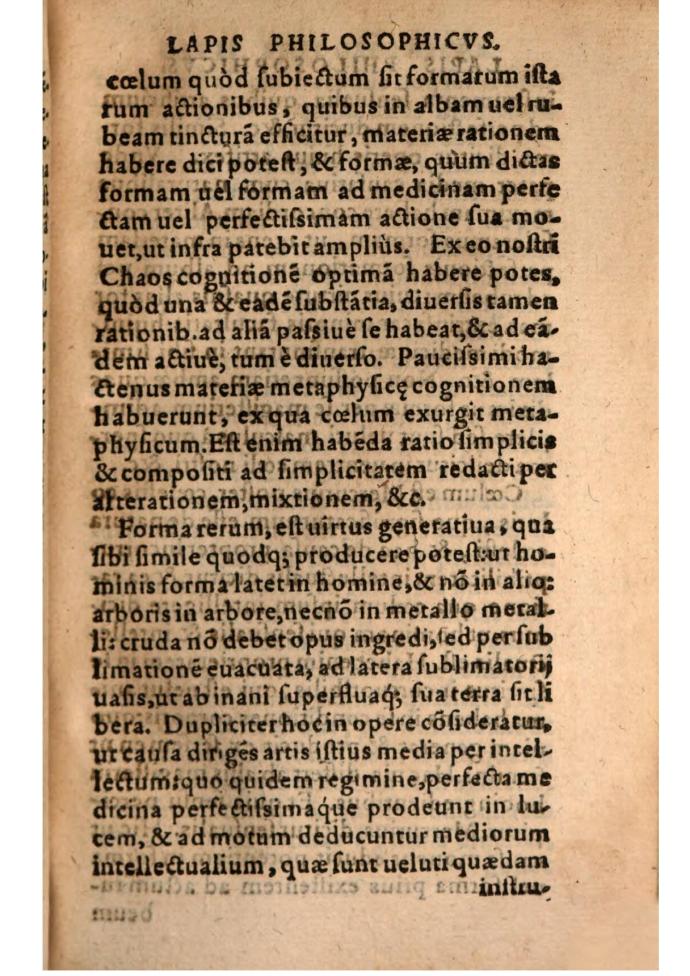 LAPIS PHILOSOPHICVS.
cœlum quòd ſubiectum ſit formarum iſta
rum actionibus, quibus in albam uel ru-
beam tincturã efficitur, materiæ rationem
habere dici poteſt, & formæ, quum dictas
formam uel formam ad medicinam perfe
ctam uel perfectiſsimam actione ſua mo-
uet, ut infra patebit amplius. Ex eo noſtri
Chaos cognitionẽ optimã habere potes,
quòd una & eadẽ ſubſtãtia, diuerſis tamen
rationib. ad aliã paſsiuè ſe habeat, & ad eã-
dem actiuè, tum è diuerſo. Pauciſsimi ha-
ctenus materiæ metaphyſicę cognitionem
habuerunt, ex qua cœlum exurgit meta-
phyſicum. Eſt enim habẽda ratio ſimplicis
& compoſiti ad ſimplicitatem redacti per
alterationem, mixtionem, &c.
Forma rerum, eſt uirtus generatiua, qua
ſibi ſimile quodq; producere poteſt: ut ho-
minis forma latet in homine, & nõ in alio:
arboris in arbore, necnõ in metallo metal-
li: cruda nõ debet opus ingredi, ſed per ſub
limationẽ euacuata, ad latera ſublimatorij
uaſis, ut ab inani ſuperfluaq; ſua terra ſit li
bera. Dupliciter hoc in opere cõſideratur,
ut cauſa dirigẽs artis iſtius media per intel-
lectum: quo quidem regimine, perfecta me
dicina perfectiſsimáque prodeunt in lu-
cem, & ad motum deducuntur mediorum
intellectualium, quæ ſunt ueluti quædam
inſtru-